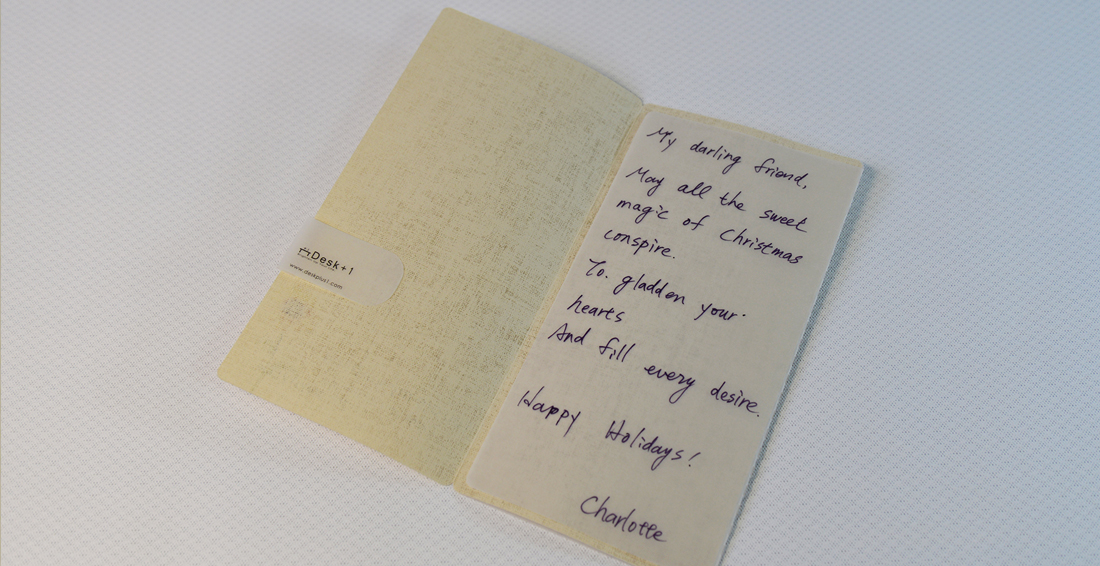 Desk+1
www.deskplus1.com
My darling friend,
May all the sweet
magic of Christmas
conspire.
To. gladden your
hearts
And fill every desire.
Happy Holidays!
Charlotte